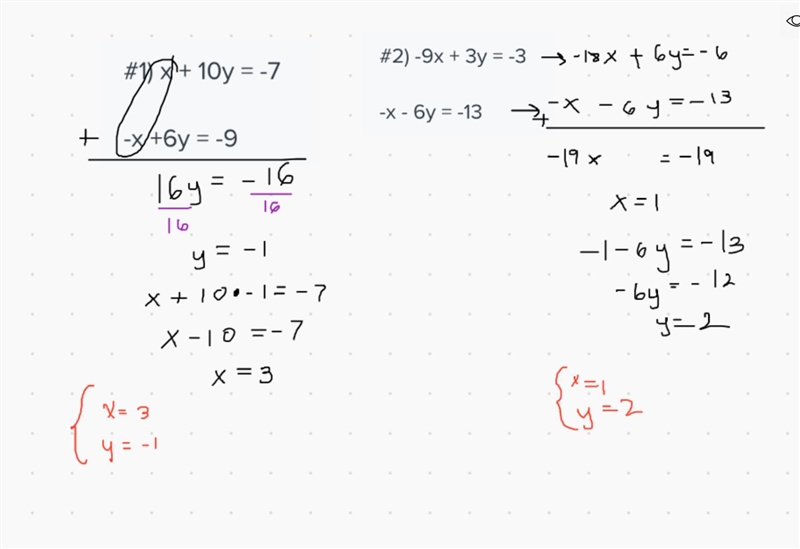 #1) x + 10y = -7
+ -x +6y = -9
16y = -16
16 16
y = -1
x + 10 • -1 = -7
x - 10 = -7
x = 3
x = 3
y = -1
#2) -9x + 3y = -3 → -18x + 6y = -6
-x - 6y = -13 → + -x - 6y = -13
-19x = -19
x = 1
-1 - 6y = -13
-6y = -12
y = 2
x = 1
y = 2